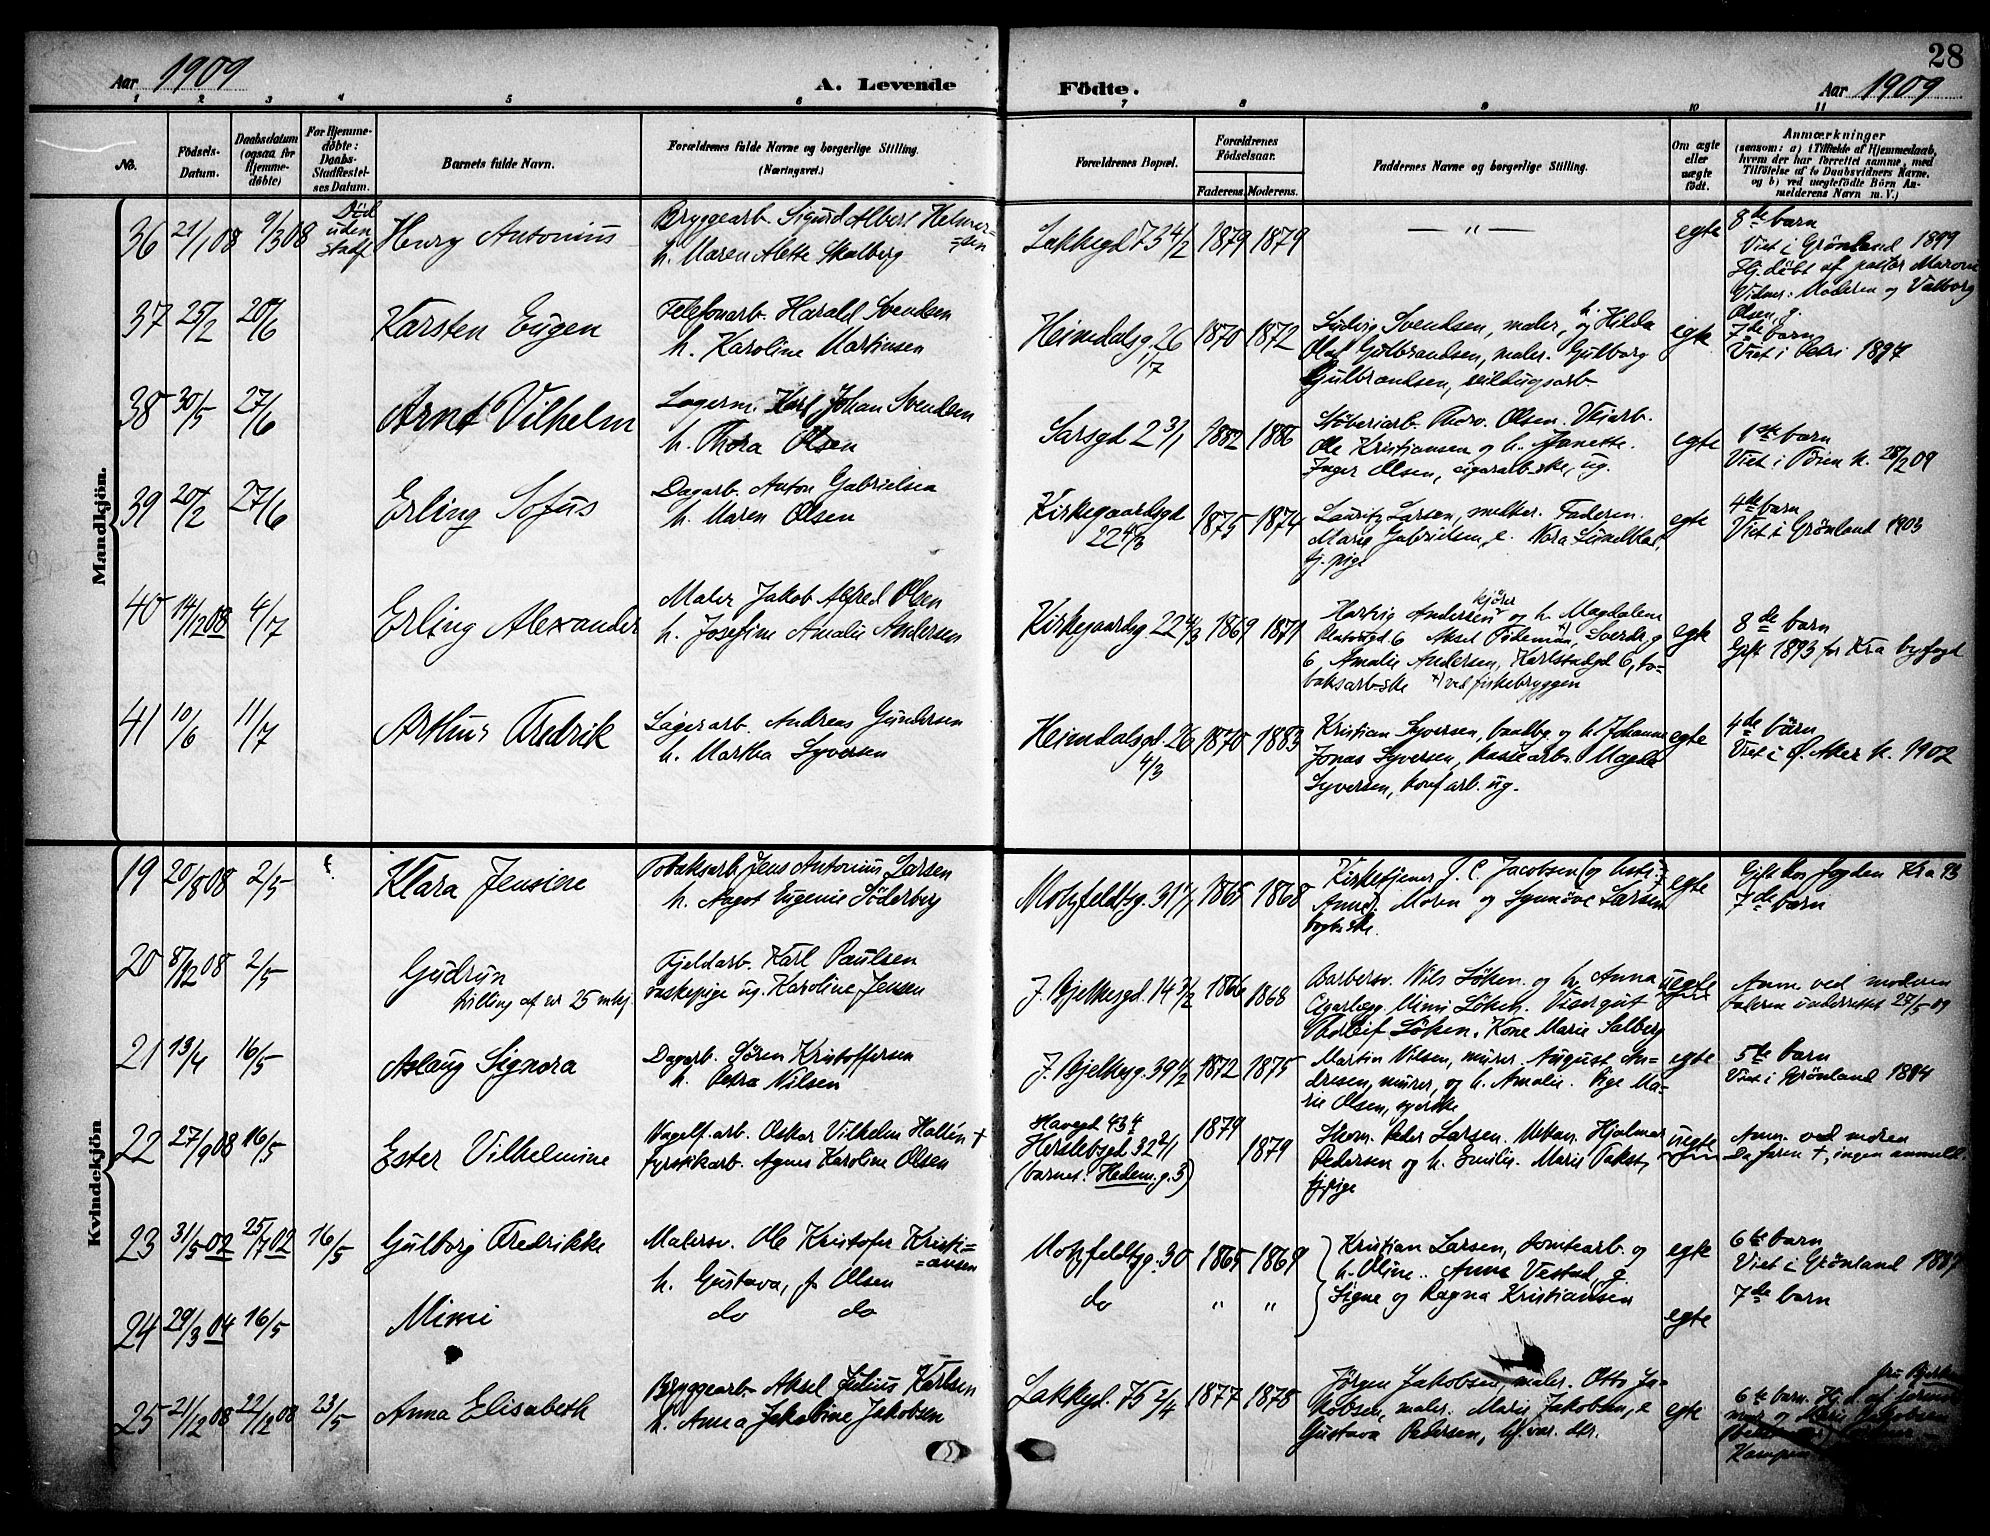 28
Aar 1909
A. Levende
Födte.
Aar 1909
1 2 3 4 5 6 7 8 9 10 11
No.
Födsels-
Datum.
Daabsdatum
(ogsaa for
Hjemme-
døbte)
For Hjemme-
døbte:
Daabs-
Stadfæstel-
ses Datum.
Barnets fulde Navn.
Forældrenes fulde Navne og borgerlige Stilling.
(Næringsvei.)
Forældrenes Bopæl.
Forældrenes
Födselsaar.
Faderens. Moderens.
Faddernes Navne og borgerlige Stilling.
Om ægte
eller
uægte
født.
Anmærkninger
(saasom: a) i Tilfælde af Hjemmedaab,
hvem der har forrettet samme, med
Tilføielse af to Daabsvidners Navne.
og b) ved uægtefødte Börn An-
melderens Navn m. V.)
Mandkjön.
36 21/1 08 9/3 08 Död
uden
stadf
Henry Antonius
Bryggearb. Sigurd Albert Helmer-
=sen
h. Maren Alette Skalberg
Lakkegd 73 4/2 1879 1879
— " —
egte
8de barn
Viet i Grönland 1899
Hj.döbt af pastor
Vidner: Moderen og Valborg
Olsen, g.
37 25/2 20/6
Karsten Eugen
Telefonarb. Harald Svendsen
h. Karoline Martinsen
Heimdalsg. 26
1/7
1870 1872
Ludvig Svendsen, maler, og h. Hilda
Olaf Gulbrandsen, maler. Gulborg
Gulbrandsen, seildugsarb.
egte
7de barn
Viet i Petri 1897
38 30/5 27/6
Arnt Vilhelm
Lagerm. Karl Johan Svendsen
h. Thora Olsen
Sarsgd 2 3/1 1882 1886
Støberiarb. Thorv. Olsen. Veiarb.
Ole Kristiansen og h. Janette.
Inger Olsen, cigararb.ske, ug.
egte
1ste barn
Viet i k. 28/2 09
39 20/2 27/6
Erling Sofus
Dagarb. Anton Gabrielsen
h. Maren Olsen
Kirkegaardsgd
22 4/3
1875 1874
Lauritz Larsen, melker. Faderen.
Marie Gabrielsen, e. Nora Lundblad,
tj. pige
egte
4de barn
Viet i Grönland 1903
40 14/12 08 4/7
Erling Alexander
Maler Jakob Alfred Olsen
h. Josefine Amalie Andersen
Kirkegaardsg 22 4/3 1869 1871
Hartvig Andersen kjører og h. Magdalene
6 Aksel Tideman, x) Sverdr. g
6, Amalie Andersen, Karlstadgd 6, to-
baksarb.ske x) ved fiskebryggen
egte
8de barn
Gift 1893 for Kra byfogd
41 10/6 11/7
Arthur Fredrik
Lagerarb. Andreas Gundersen
h. Martha Syversen
Heimdalsgd. 26
4/3
1870 1883
Kristian Syversen, og h. Johanne
Jonas Syversen, kassearb. Magda
Syversen, konf.arb. ug.
egte
4de barn
Viet i Ø. Aker k. 1902
Kvindekjön
19 20/8 08 2/5
Klara Jensine
Tobaksarb. Jens Antonius Larsen
h. Aagot Eugenie Söderberg
Motzfeldtsg. 31 1/1 1865 1868
Kirketjener J. C. Jacobsen og hustr.
Anna. Moren og Synnöve Larsen
bogb.ske.
egte
Gift hos fogden Kra 93
7de barn
20 8/12 08 2/5
Gudrun
tvilling af nr 25 mkj
Fjeldarb. Karl Paulsen
vaskepige ug. Karoline Jensen
J. Bjelkesgd. 14 2/2 1866 1868
Barbersv. Nils Löken og h. Anna
Cigarlægg. Mimi Löken. Visergut
Thorleif Löken. Kone Marie Salberg
uegte
Anm. ved moderen
faderen underrettet 27/5 09
21 13/4 16/5
Aslaug Signora
Dagarb. Sören Kristoffersen
h. Petra Nilsen
J. Bjelkeg. 39 4/2 1872 1875
Martin Nilsen, murer. August An-
dresen, murer, og h. Amalie. Pige Ma-
rie Olsen, syerske
egte
5te barn
Viet i Grönland 1894
22 27/9 08 16/5
Ester Vilhelmine
Vognf.arb. Oskar Vilhelm Hallén +
fyrstikarb. Agnes Karoline Olsen
Havegd 43 4
Herslebsgd 32 2/1
(barnet: Hedem. g. 3)
1879
1879
Skom. Peder Larsen. Mekan. Hjalmar
Pedersen og h. Emilie. Marie
tj.pige
uegte
Anm. ved moren
Da faren +, ingen anmeld.
23 31/5 02 25/7 02 16/5
Gulborg Fredrikke
Malersv. Ole Kristofer Kristi=
=ansen
h. Gustava, f. Olsen
Motzfeldtsg. 30 1865 1869
Kristian Larsen, tomtearb. og
h. Oline. Anna Vestad, g.
Signe og Ragna Kristiansen
egte
6te barn
Viet i Grönland 1887
24 29/3 04 16/5
Mimi
do do
do " "
egte
7de barn
25 21/12 08 22/12 08 23/5
Anna Elisabeth
Bryggearb. Aksel Julius Karlsen
h. Anna Jakobine Jakobsen
Lakkgd. 75 2/4 1877 1878
Jörgen Jakobsen, maler. Otto Ja-
kobsen, maler. Marie Jakobsen, e
Gustava Pedersen,
egte
6te barn. Hj.d. af jorde-
mor og Marie Jakobsen